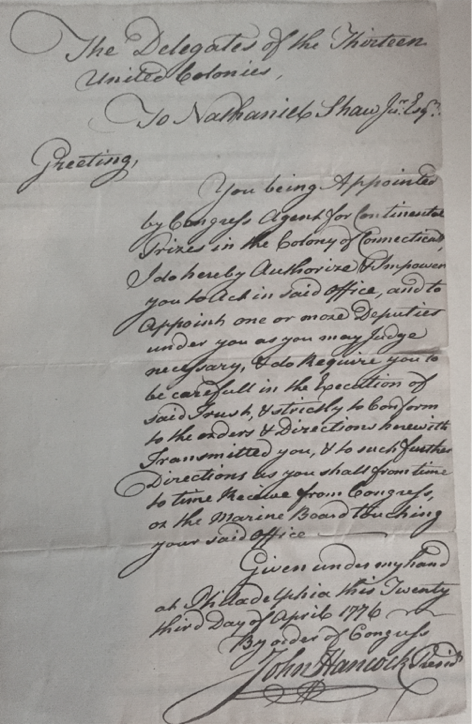 The Delegates of the Thirteen
United Colonies,
To Nathaniel Shaw Junr. Esqr.
Greeting,
You being Appointed
by Congress Agent for Continental
Prizes in the Colony of Connecticut,
I do hereby Authorize & Impower
you to Act in said Office, and to
Appoint one or more Deputies
under you as you may Judge
necessary, & do Require you to
be carefull in the Execution of
said Trust, & strictly to Conform
to the orders & Directions herewith
Transmitted you, & to such further
Directions as you shall from time
to time Receive from Congress,
or the Marine Board touching
your said Office
Given under my hand
at Philadelphia this Twenty
third Day of April 1776
By order of Congress
John Hancock Presidt